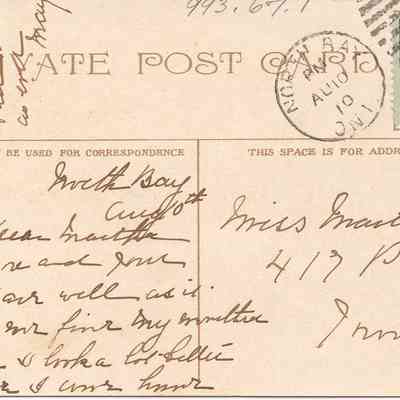 993.67.1
as ever May
ATE POST CARD
NORTH BAY
PM
AU 10
10
ONT.
BE USED FOR CORRESPONDENCE
THIS SPACE IS FOR ADDR
North Bay
Aug 10th
Dear Martha
and your
are well as is
fine my mother
I look a lot better
I came home
Miss Mart
417